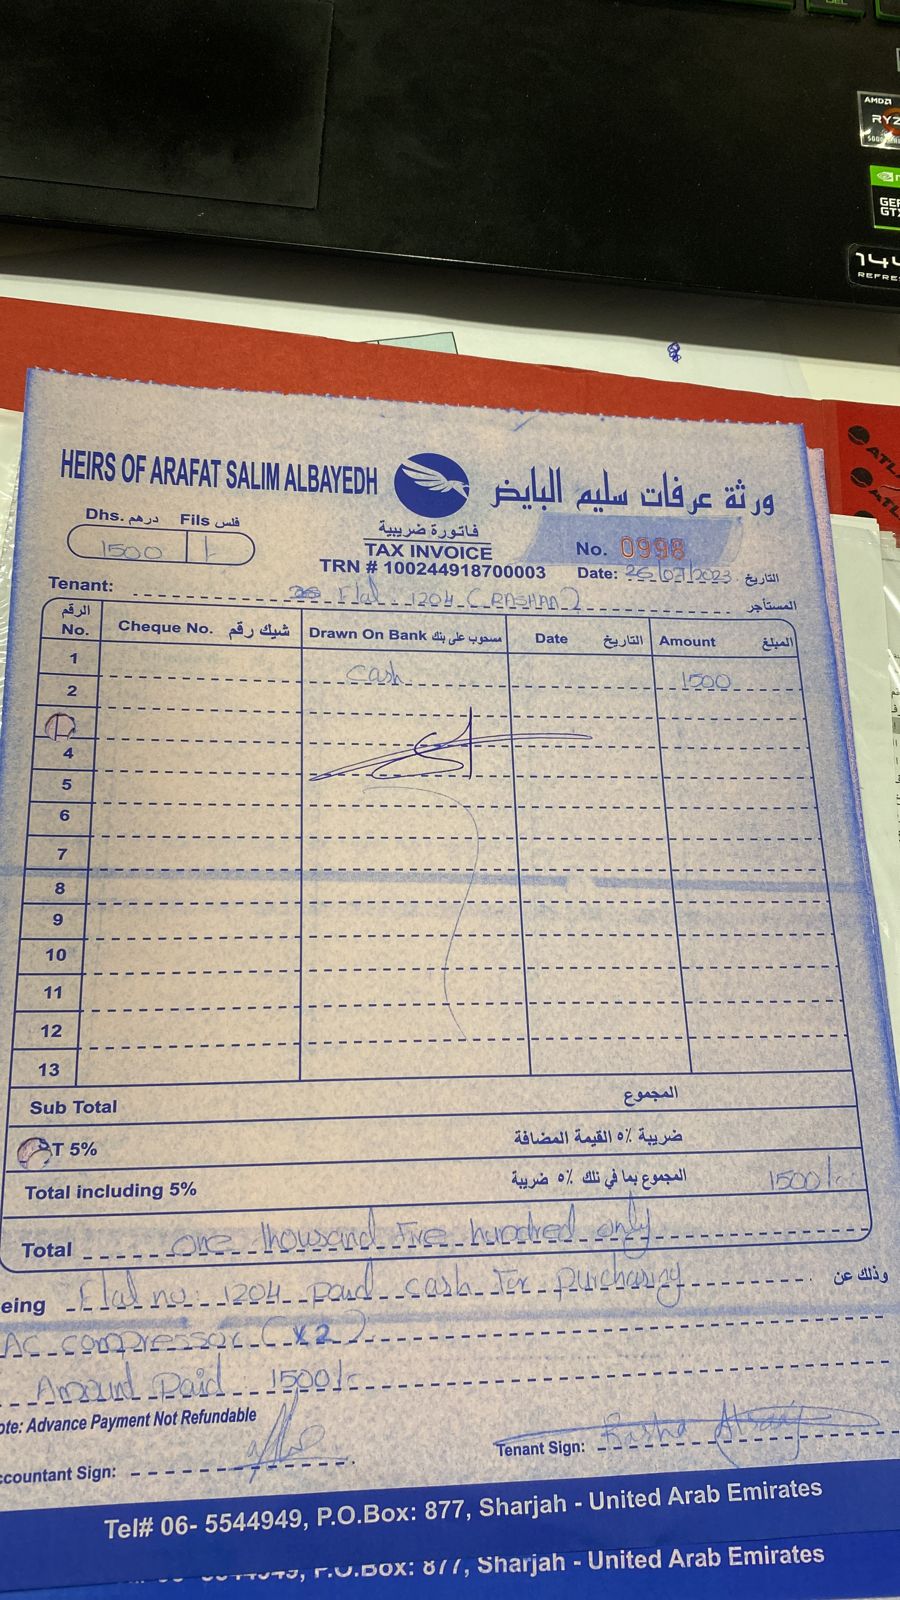 DEL
AMD
RYZ
5000
GEF
GTX
144
REFRE
ATL
ATL
HEIRS OF ARAFAT SALIM ALBAYEDH ورثة عرفات سليم البايض
Dhs. درهم Fils فلس
1500
فاتورة ضريبية
TAX INVOICE
No. 0998
TRN # 100244918700003
Date: 26/07/2023 التاريخ
Tenant: Flat 1204 (RASHAA) المستأجر
الرقم No. Cheque No. شيك رقم Drawn On Bank مسحوب على بنك Date التاريخ Amount المبلغ
1 cash 1500
2
4
5
6
7
8
9
10
11
12
13
Sub Total المجموع
T 5% ضريبة ٥٪ القيمة المضافة
Total including 5% المجموع بما في ذلك ٥٪ ضريبة 1500/
Total one thousand five hundred only
eing Flat no: 1204 paid cash for purchasing وذلك عن
AC compressor (x2)
Amount Paid 1500/
ote: Advance Payment Not Refundable
ccountant Sign: Tenant Sign: Rasha
Tel# 06- 5544949, P.O.Box: 877, Sharjah - United Arab Emirates
P.O.Box: 877, Sharjah - United Arab Emirates